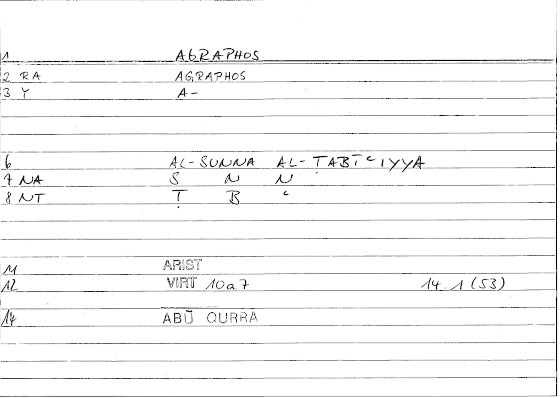 1 AGRAPHOS
2 RA AGRAPHOS
3 Y A-
6 AL-SUNNA AL-ṬABĪʿIYYA
7 NA S N N
8 NT Ṭ B ʿ
11 ARIST
12 VIRT 10a7 14.1(53)
14 ABŪ QURRA